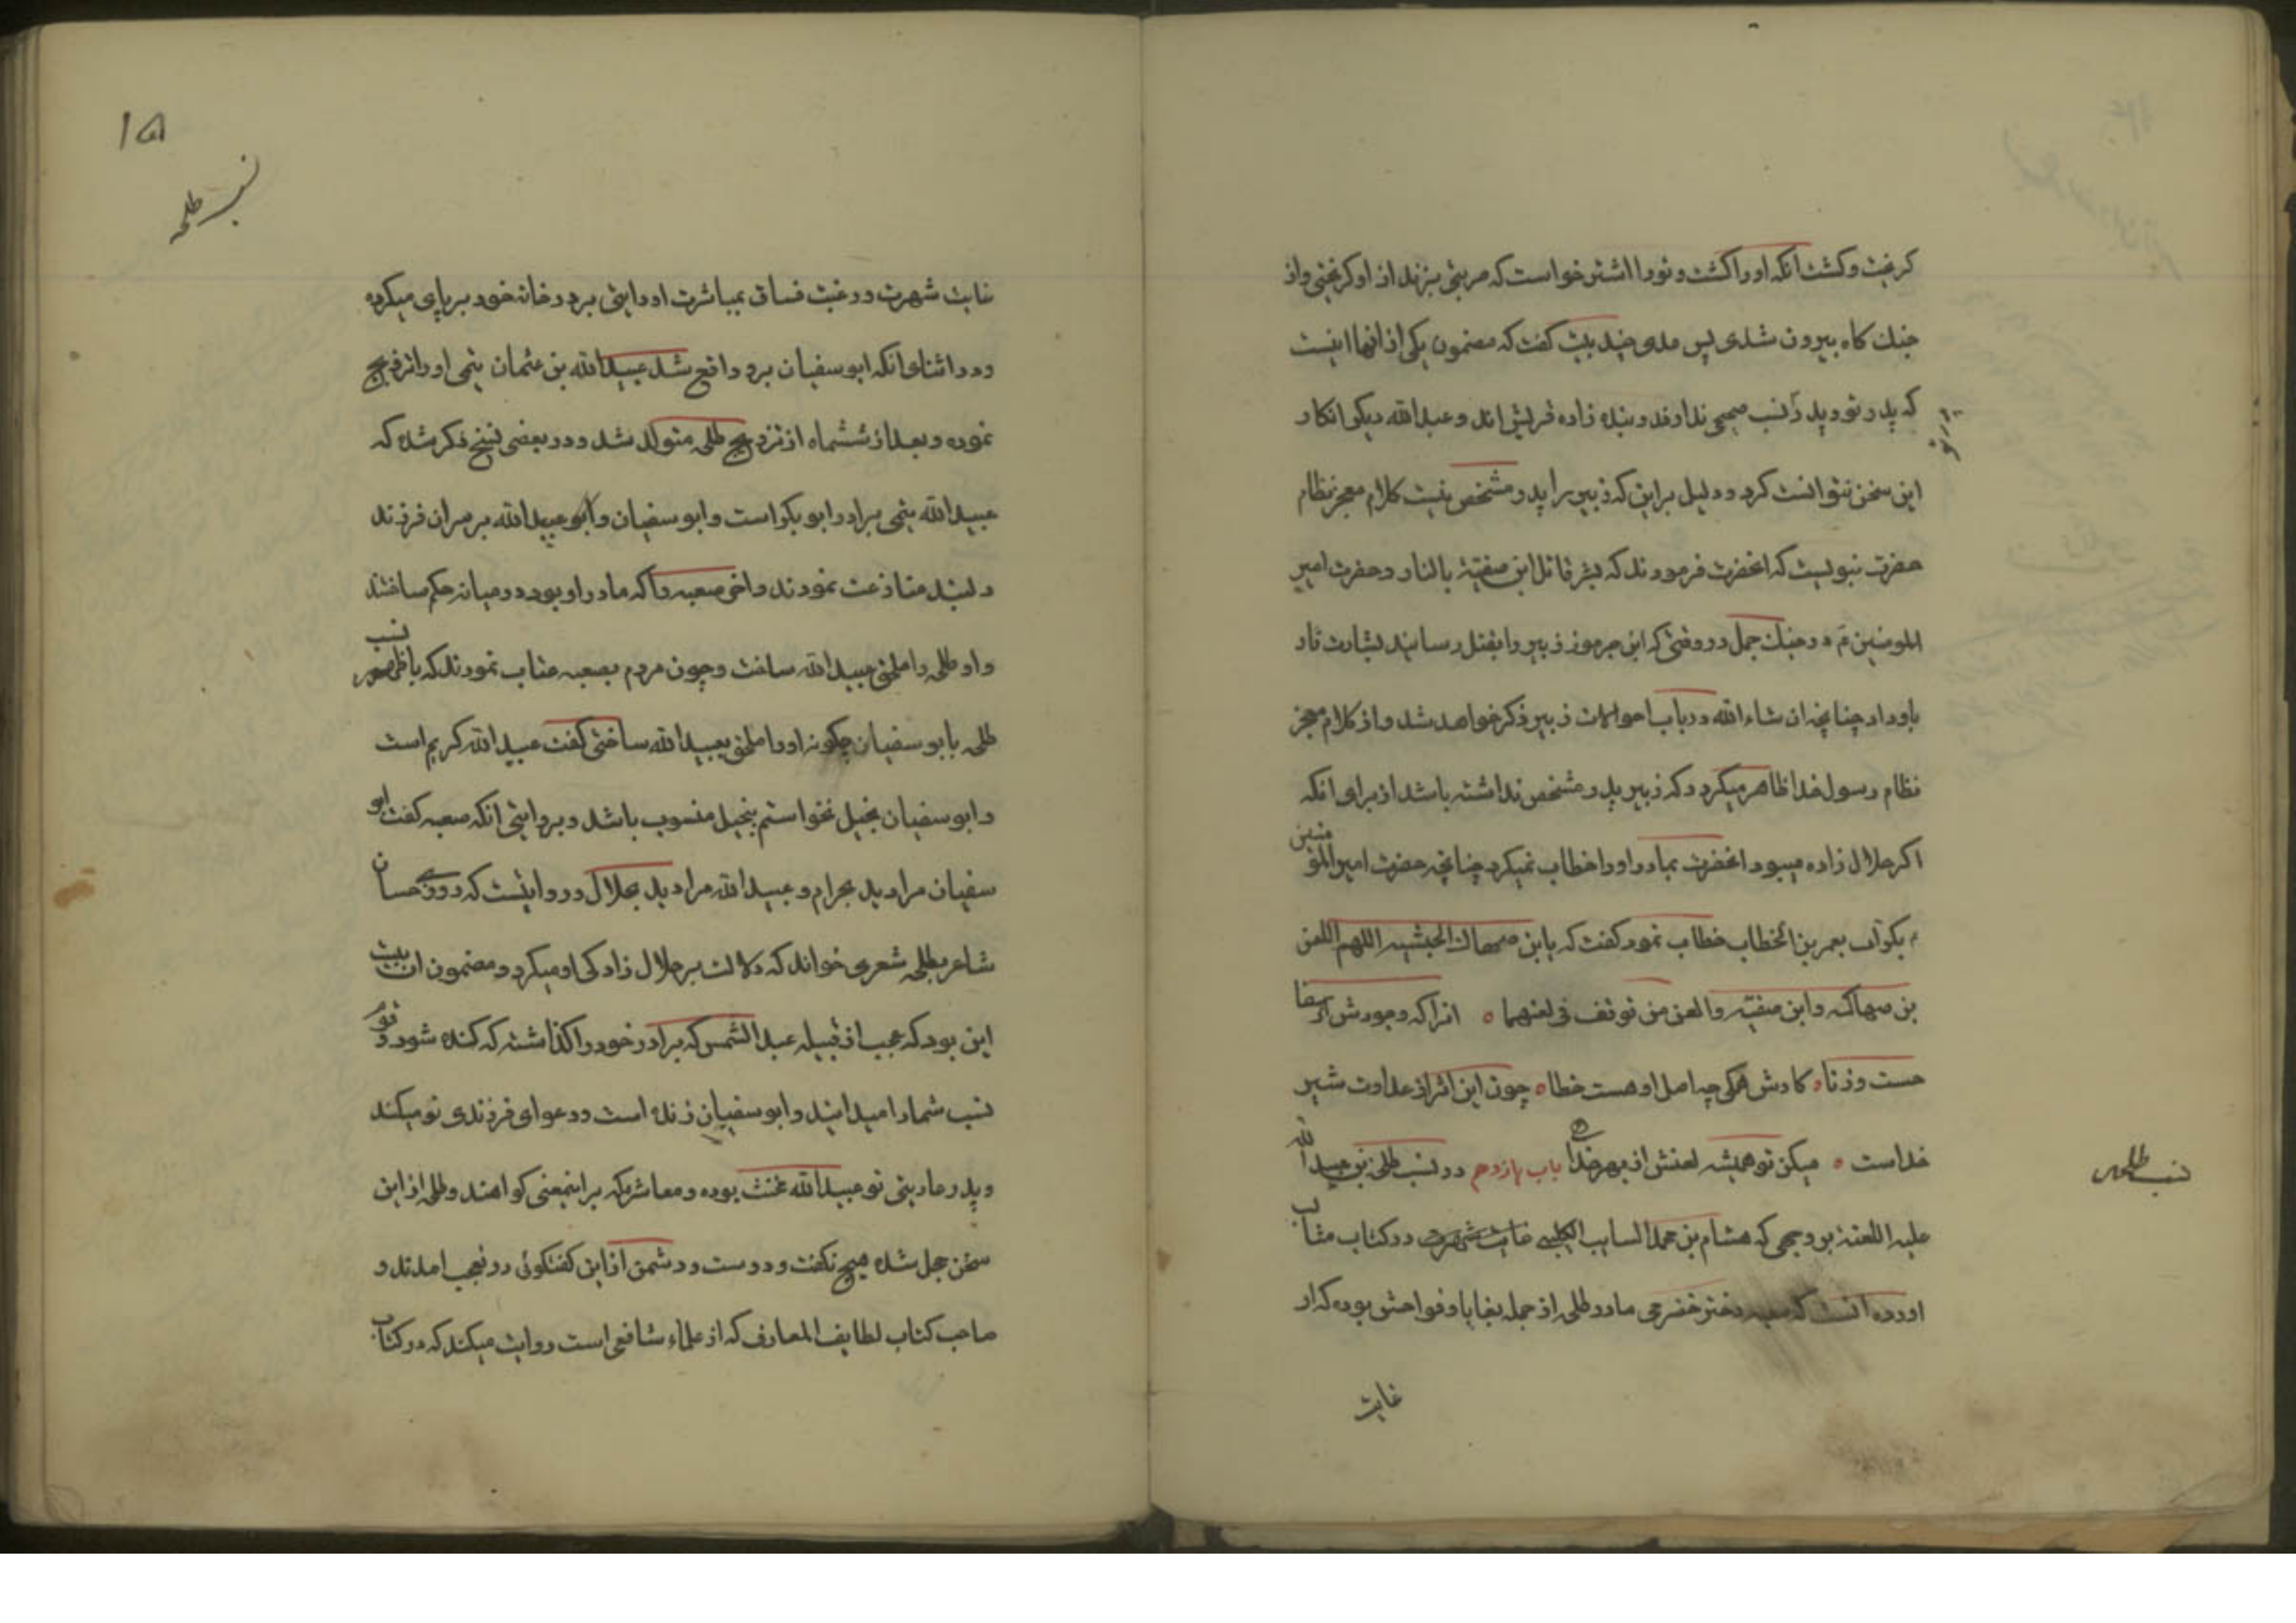 کریخت و کشت آنکه او را کشت و تو را اشتر خواست که ضربتی بزند از او کریختی و از
جنک کاه بیرون شدی پس مدی چند بیت کفت که مضمون یکی از انها اینست
که پدر تو و پدر نسب صحیحی ندارند و بنده زاده قریش اند و عبدالله دیکر انکار
این سخن نتوانست کرد و دلیل بر این که زبیر را پدر مشخص نیست کلام معجز نظام
حضرت نبویست که انحضرت فرمودند که بشر قاتل ابن صفیة بالنار و حضرت امیر
المومنین ع در جنک جمل در وقتی که ابن جرموز زبیر را بقتل رسانید بشارت نار
باو داد چنانچه ان شاء الله در باب احوالات زبیر ذکر خواهد شد و از کلام معجز
نظام رسول خدا ظاهر میکردد که زبیر پدر مشخص نداشته باشد از برای انکه
اکر حلال زاده میبود انحضرت بمادر او را خطاب نمیکرد چنانچه حضرت امیر المومنین
م بکرات بعمر بن الخطاب خطاب نمود کفت که یابن صهاک الحبشیه اللهم العن
بن صهاک و ابن صفیه و العن من توقف فی لعنهما ه انرا که وجودش از سفا
حست و زنا ه کارش همکی چه اصل او هست خطا ه چون این اثر از عداوت شیر
خداست ه میکن تو همیشه لعنش از بهر خدا باب یازدهم در نسب طلحه بن عبید الله
علیه اللعنة بر وجهی که هشام بن محمد السایب الکلبی غایت شهرت در کتاب مثالب
اورده انست که صعبه دختر خضرمی مادر طلحه از جمله بغایا و فواحش بوده که از
غایت
نسب طلحه
۱۵
نسب طلحه
غایت شهرت و رغبت فساق بمباشرت او رایتی بر در خانه خود بر پای میکرده
و در اثنای انکه ابوسفیان برو واقع شد عبیدالله بن عثمان تیمی او را تزویج
نموده و بعد از ششماه از تزویج طلحه متولد شد و در بعضی نسخ ذکر شده که
عبیدالله تیمی برادر ابوبکر است و ابوسفیان و ابو عبیدالله بر سر ان فرزند
دلبند منازعت نمودند و اخر صعبه را که مادر او بود در میانه حکم ساختند
و او طلحه را ملحق بعبیدالله ساخت و چون مردم بصعبه عتاب نمودند که با ظهور نسب
طلحه بابو سفیان چکونه او را ملحق بعبیدالله ساختی کفت عبیدالله کریم است
و ابوسفیان بخیل نخواستم ببخیل منسوب باشد و بروایتی انکه صعبه کفت ابو
سفیان مرا دید بحرام و عبیدالله مرا دید بحلال و روایتست که روزی حسان
شاعر بطلحه شعری خواند که دلالت بر حلال زادکی او میکرد و مضمون ان بیت
این بود که عجب از قبیله عبدالشمس که برادر خود را کذاشته که کنده شود و قوم
نسب شما را میدانید و ابوسفیان زنده است و دعوای فرزندی تو میکند
و پدر عاریتی تو عبیدالله مخنث بوده و معاشر مکه بر اینمعنی کواهند و طلحه از این
سخن خجل شده هیچ نکفت و دوست و دشمن از این کفتکوئی در تعجب امدند و
صاحب کتاب لطایف المعارف که از علماء شافعی است روایت میکند که در کتاب